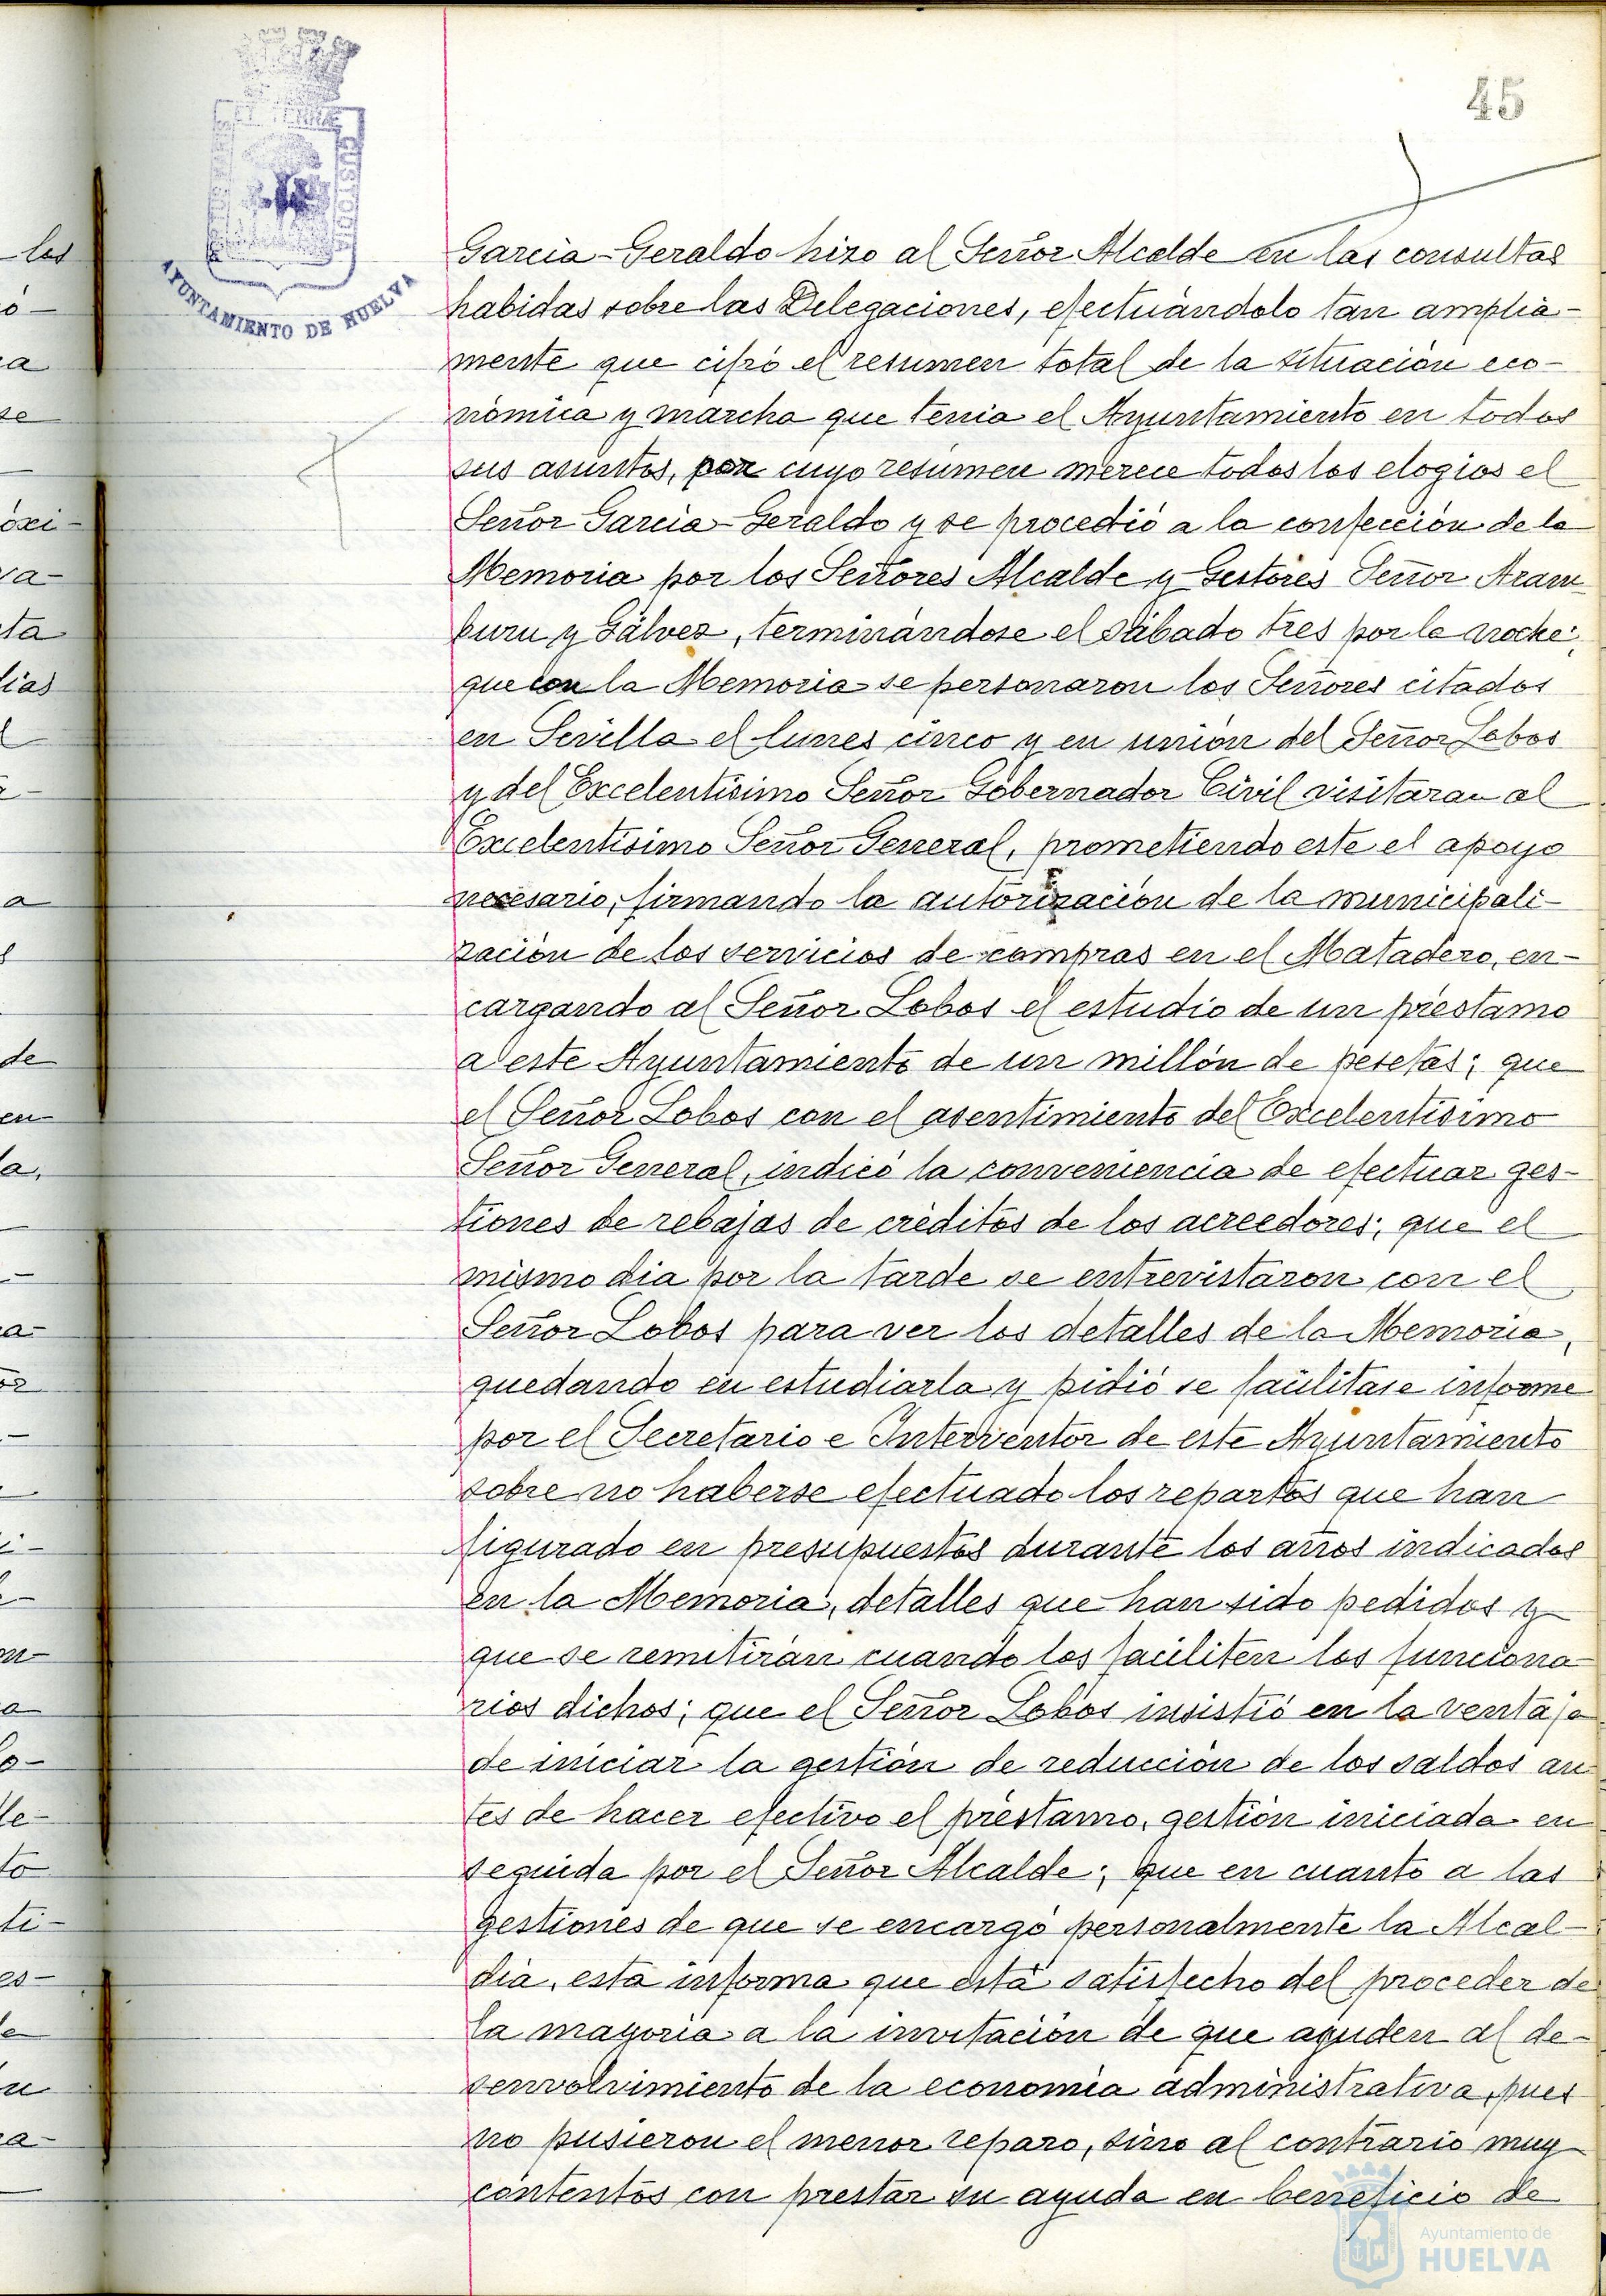 45
AYUNTAMIENTO DE HUELVA
CUSTODIA
Garcia-Geraldo hizo al Señor Alcalde en las consultas
habidas sobre las Delegaciones, efectuándolo tan amplia-
mente que cifró el resumen total de la situación eco-
nómica y marcha que tenia el Ayuntamiento en todos
sus asuntos, por cuyo resúmen merece todos los elogios el
Señor Garcia-Geraldo y se procedió a la confección de la
Memoria por los Señores Alcalde y Gestores Señor Aram
buru y Gálvez, terminándose el sábado tres por la noche;
que con la Memoria se personaron los Señores citados
en Sevilla el lunes cinco y en unión del Señor Lobos
y del Excelentisimo Señor Gobernador Civil visitaran al
Excelentisimo Señor General, prometiendo este el apoyo
necesario, firmando la autorización de la municipali-
zación de los servicios de compras en el Matadero, en-
cargando al Señor Lobos el estudio de un préstamo
a este Ayuntamiento de un millón de pesetas; que
el Señor Lobos con el asentimiento del Excelentisimo
Señor General, indicó la conveniencia de efectuar ges-
tiones de rebajas de créditos de los acreedores; que el
mismo dia por la tarde se entrevistaron con el
Señor Lobos para ver los detalles de la Memoria,
quedando en estudiarla y pidió se facilitase informe
por el Secretario e Interventor de este Ayuntamiento
sobre no haberse efectuado los repartos que han
figurado en presupuestos durante los años indicados
en la Memoria, detalles que han sido pedidos y
que se remitirán cuando los faciliten los funciona
rios dichos; que el Señor Lobos insistió en la ventaja
de iniciar la gestión de reducción de los saldos an
tes de hacer efectivo el préstamo, gestión iniciada en
seguida por el Señor Alcalde; que en cuanto a las
gestiones de que se encargó personalmente la Alcal-
dia, esta informa que está satisfecho del proceder de
la mayoria a la invitación de que ayuden al de-
senvolvimiento de la economia administrativa, pues
no pusieron el menor reparo, sino al contrario muy
contentos con prestar su ayuda en beneficio de
Ayuntamiento de
HUELVA